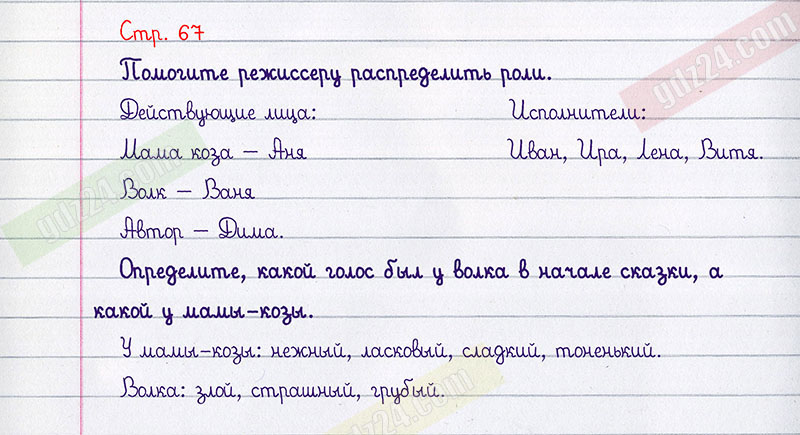 Стр. 67
Помогите режиссеру распределить роли.
Действующие лица: Исполнители:
Мама коза – Аня Иван, Ира, Лена, Витя.
Волк – Ваня
Автор – Дима.
Определите, какой голос был у волка в начале сказки, а
какой у мамы-козы.
У мамы-козы: нежный, ласковый, сладкий, тоненький.
Волка: злой, страшный, грубый.
gdz24.com
gdz24.com
gdz24.com